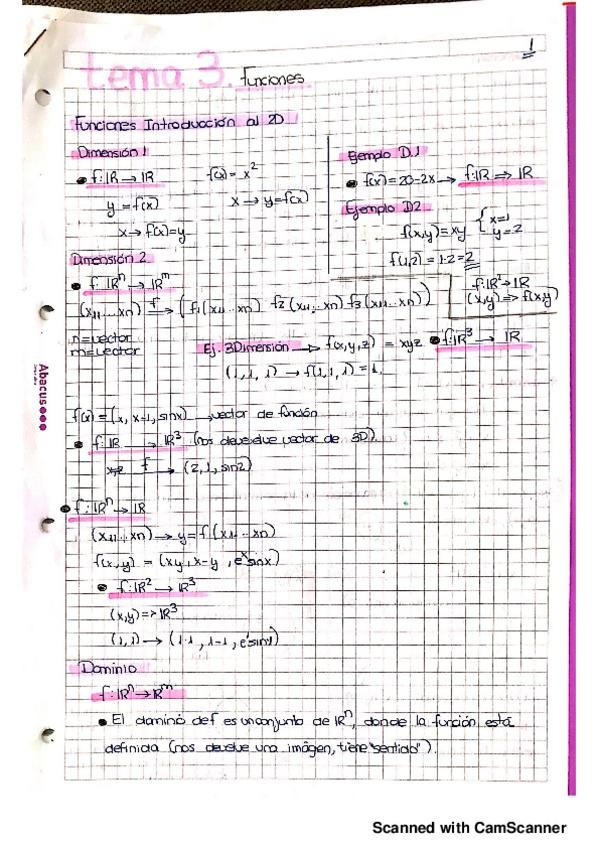 1
tema 3. Funciones
Funciones Introducción al 2D
Dimensión 1
• f: IR → IR
f(x) = x²
y = f(x)
x → y=f(x)
x → f(x)=y
Ejemplo D.1
• f(x) = 20-2x → f: IR ⇒ IR
Ejemplo D2
f(x,y) = xy { x=1
y=2
f(1,2) = 1·2 = 2
Dimensión 2
• f: IRⁿ → IRᵐ
(x1, ... xn) f→ (f1(x1 ... xn) f2(x1, ... xn) f3(x1 ... xn))
f: IR² → IR
(x,y) => f(x,y)
n=vector
m=vector
Ej. 3Dimensión → f(x,y,z) = xyz • f: IR³ → IR
(1, 1, 1) → f(1,1,1) = 1.
f(x) = (x, x-1, sinx) → vector de función
• f: IR → IR³ (nos devuelve vector de 3D)
f→ (2, 1, sin2)
• f: IRⁿ → IR
(x1, ... xn) → y = f(x1 ... xn)
f(x,y) = (xy, x-y, eˣsinx)
• f: IR² → IR³
(x,y) => IR³
(1,1) → (1·1, 1-1, e¹sin1)
Dominio
f: IRⁿ → IRᵐ
• El dominó def es un conjunto de IRⁿ, donde la función está
definida (nos devuelve una imágen, tiene "sentido").
Abacus
Scanned with CamScanner